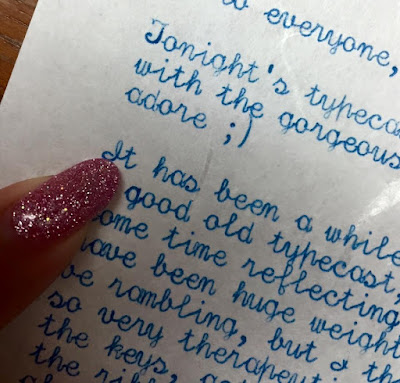 everyone,
Tonight's typecas
with the gorgeous
adore ;)
It has been a while
good old typecast,
ome time reflecting
have been huge weight
be rambling, but I th
so very therapeut
the keys, a
the ri